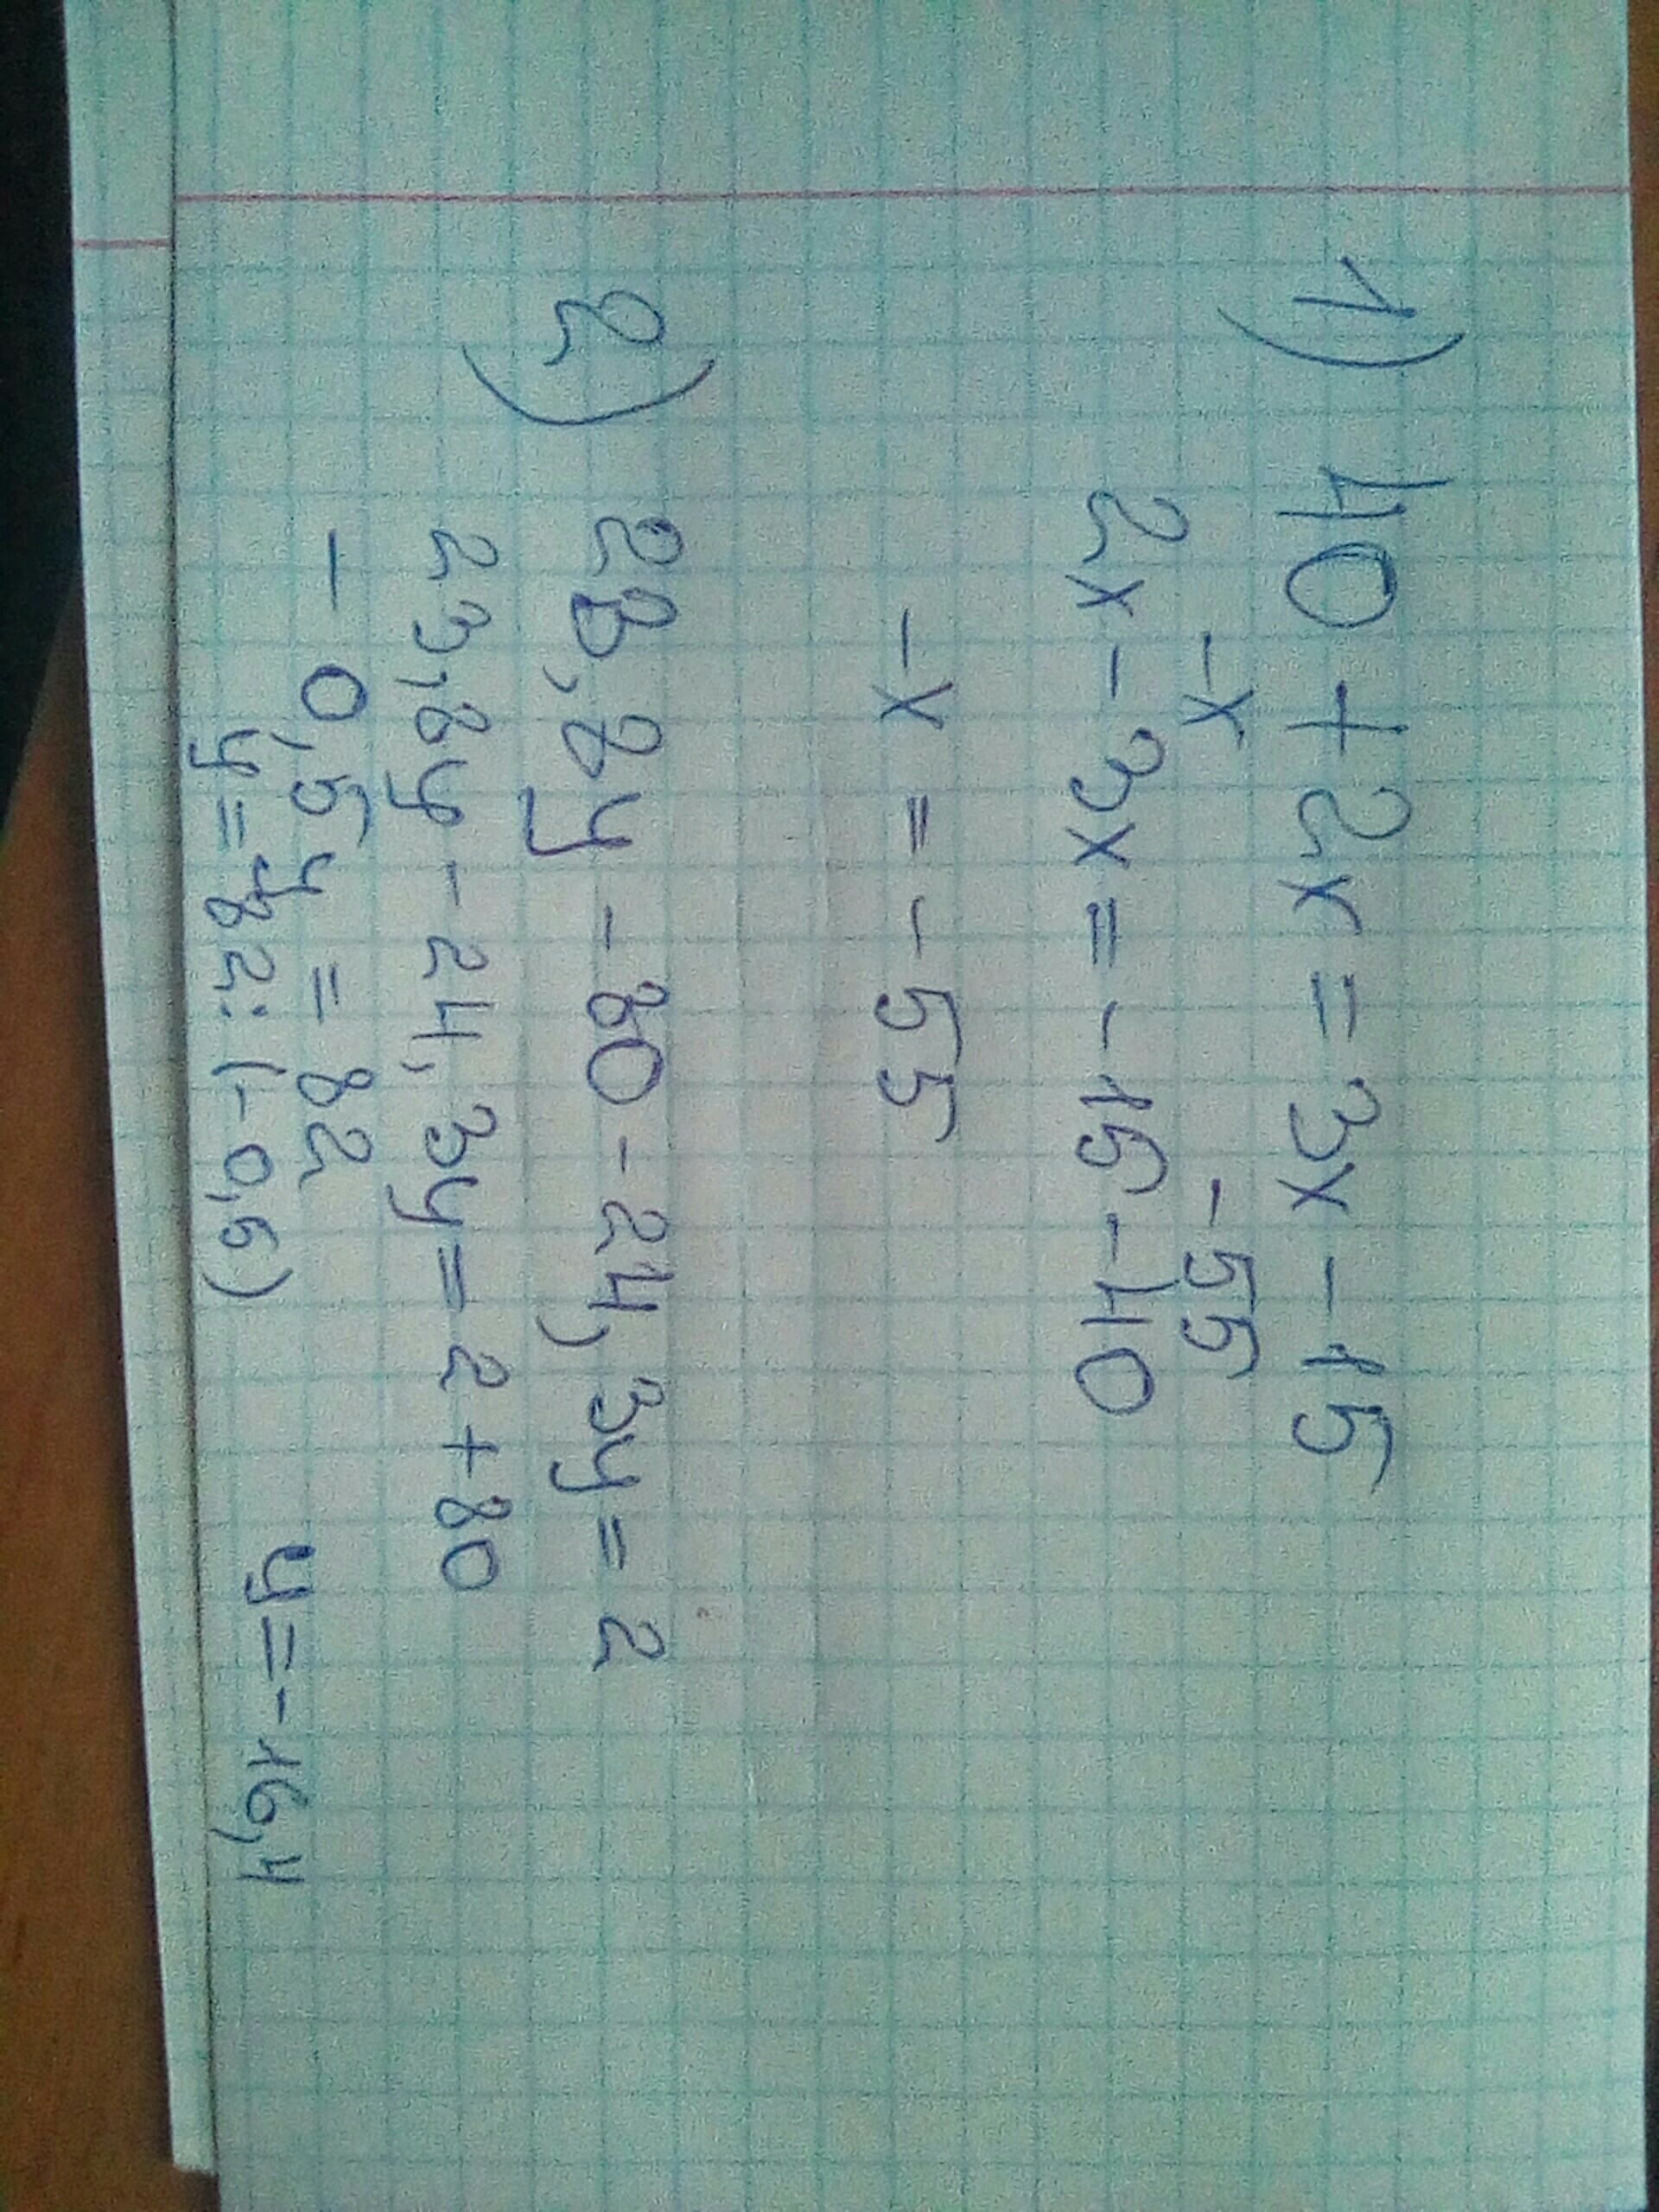 1) 40 + 2x = 3x - 15
-x -55
2x - 3x = - 15 - 40
-x = - 55
2) 28,8y - 80 - 24,3y = 2
23,8y - 24,3y = 2 + 80
- 0,5y = 82
y = 82 : (-0,5)
y = -16,4